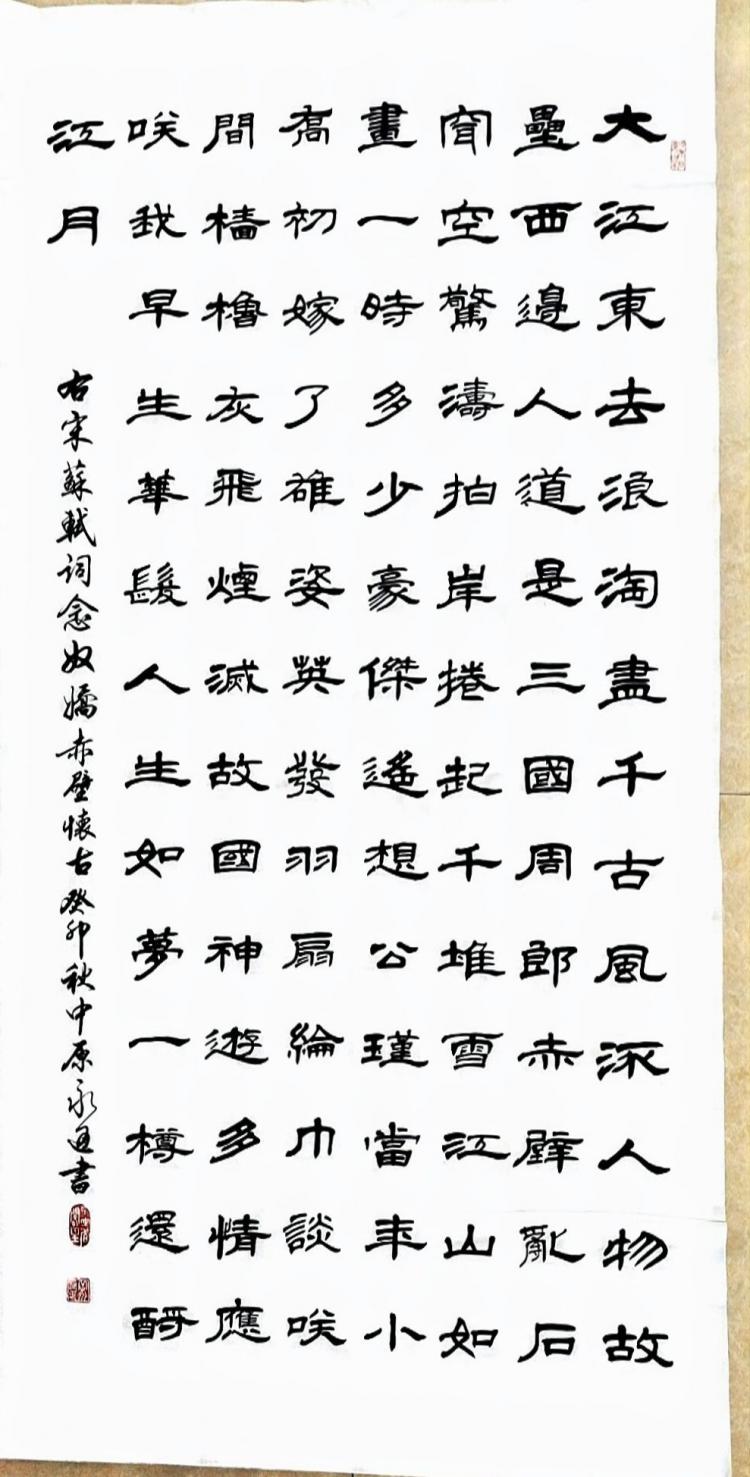 大江東去浪淘盡千古風流人物故
壘西邊人道是三國周郎赤壁亂石
穿空驚濤拍岸捲起千堆雪江山如
畫一時多少豪傑遙想公瑾當年小
喬初嫁了雄姿英發羽扇綸巾談咲
間檣櫓灰飛煙滅故國神遊多情應
咲我早生華髮人生如夢一樽還酹
江月
右宋蘇軾詞念奴嬌赤壁懷古癸卯秋中原永書